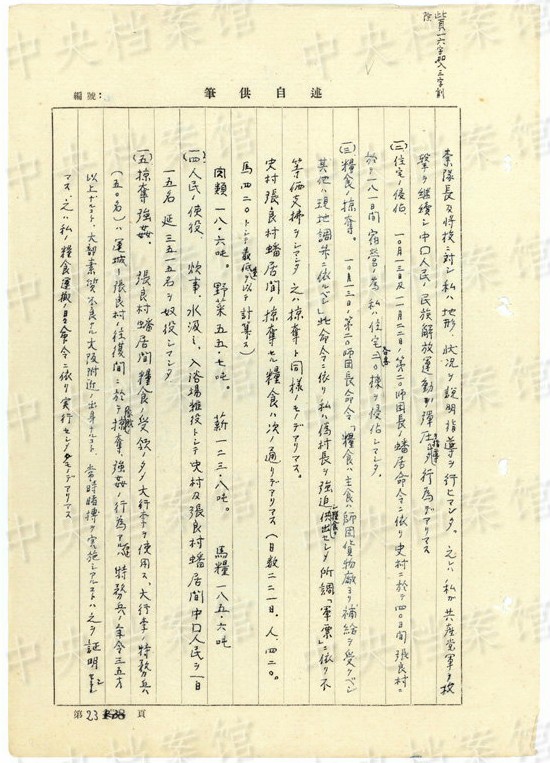 此頁一六字加入三字削除
編號：
筆供自述
索隊長及将校ニ対シ私ハ地形、状況ヲ説明指導ヲ行ヒマシタ。之レハ私ガ共産党軍ヲ攻
撃ヲ継続シ中国人民ノ民族解放運動ヲ弾圧スル行為デアリマス
(二)住宅ノ侵佔 一〇月一三日及一一月二二日、第二〇師団長ノ蟠居命令ニ依リ史村ニ於テ四〇日間張良村ニ
於テ一八一日間宿営ノ為、私ハ住宅各々二〇棟ヲ侵佔シマシタ。
(三)糧食ノ掠奪。 一〇月一三日、第二〇師団長命令「糧食ハ主食ハ師団貨物廠ヨリ補給ヲ受クベシ
其他ハ現地調弁ニ依ルベシ」此命令ニ依リ私ハ偽村長ヲ強迫シ供出セシメ所謂「軍票」ニ依リ不
等価支拂ヲシマシタ 之ハ掠奪ト同様ノモノデアリマス。
史村張良村蟠居間ノ掠奪セル糧食ハ次ノ通リデアリマス(日数二二一日、人、四二〇。
馬四二〇トシテ最低ヲ以テ計算ス)
肉類 一八・六吨。 野菜 五五・七吨。 薪 一二三・八吨。 馬糧 一八五・六吨
(四)人民ノ使役、 炊事、水汲ミ、入浴場雑役トシテ史村及張良村蟠居間中国人民ヲ一日
一五名 延三三一五名ヲ奴役シマシタ
(五)掠奪強姦。 張良村蟠居間糧食ノ受領ノ為大行李ヲ使用ス、大行李ノ特務兵
(五〇名)ハ運城―張良村ノ往復間ニ於テ掠奪、強姦ノ行為アル 特務兵ノ年令三五才
以上ナルコト、大部素質不良ナル大阪附近ノ出身ナルコト、常時賭博ヲ実施シアルコトハ之ヲ証明シ
マス、之ハ私ノ糧食運搬ノ命令ニ依リ実行セシメタモノデアリマス
第 23 頁
中央档案馆